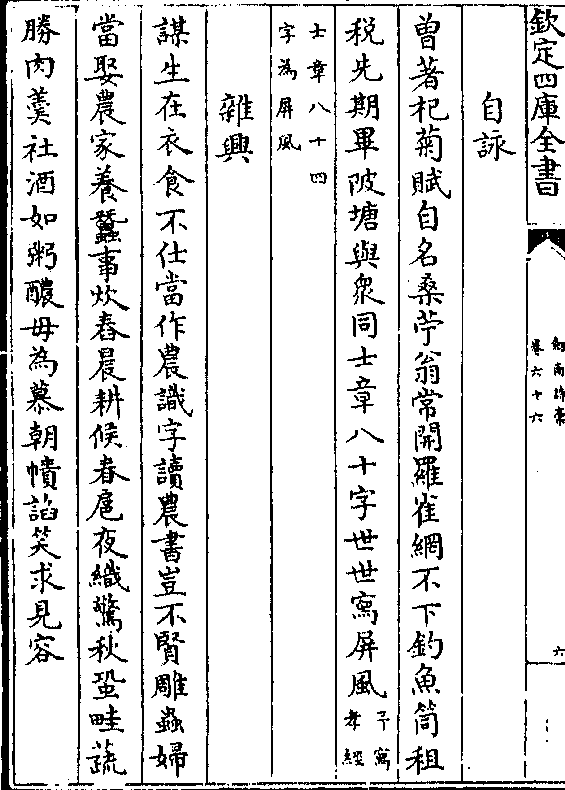 欽定四庫全書
劍南詩稾
卷六十六
六
自詠
曽著杞菊賦自名桑苧翁常開羅雀網不下釣魚筒租
税先期畢陂塘與衆同士章八十字世世寫屏風予寫孝經
士章八十四字為屏風
雜興
謀生在衣食不仕當作農識字讀農書豈不賢雕蟲婦
當娶農家養蠶事炊舂晨耕候春扈夜織驚秋蛩畦蔬
勝肉羮社酒如粥醲毋為慕朝幘諂笑求見容